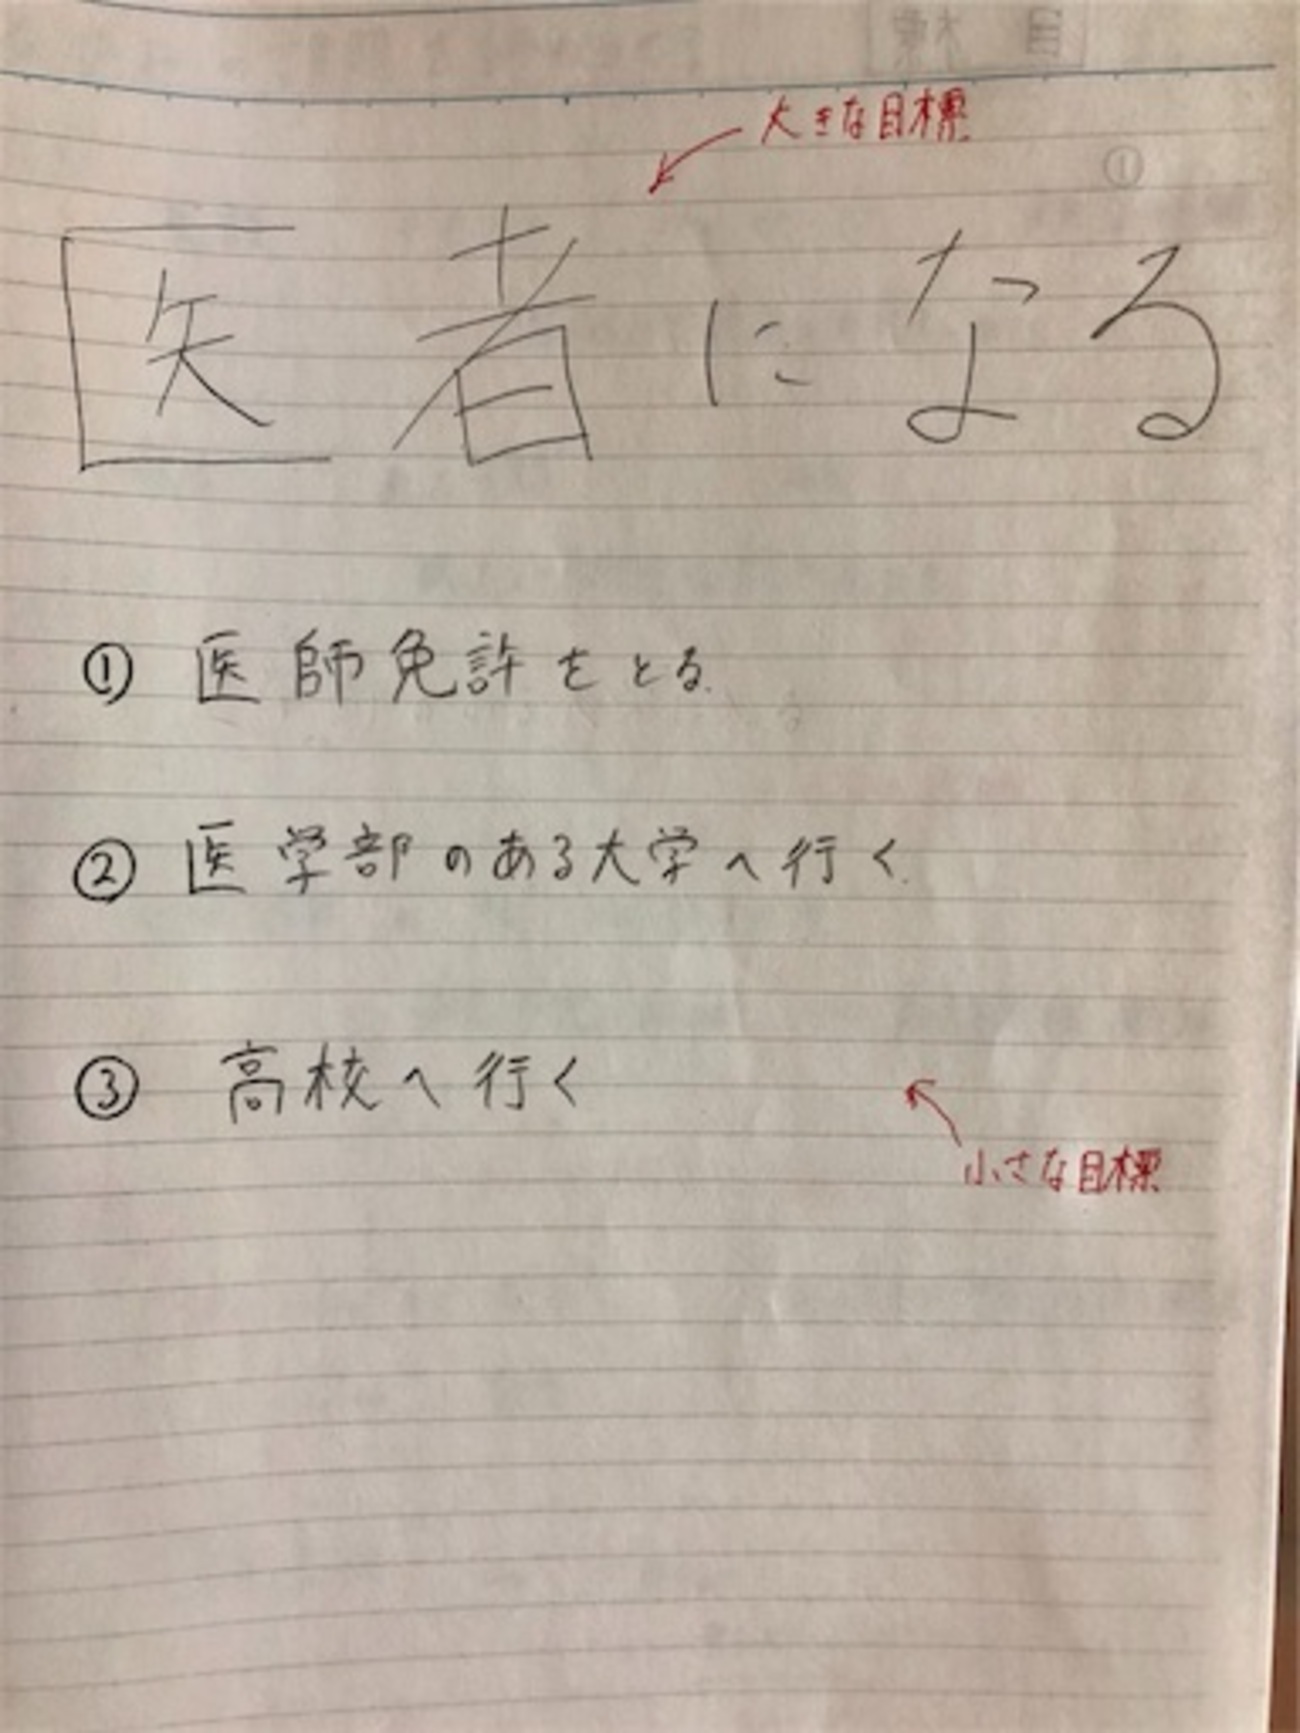 大きな目標
医者になる
① 医師免許をとる
② 医学部のある大学へ行く
③ 高校へ行く
小さな目標